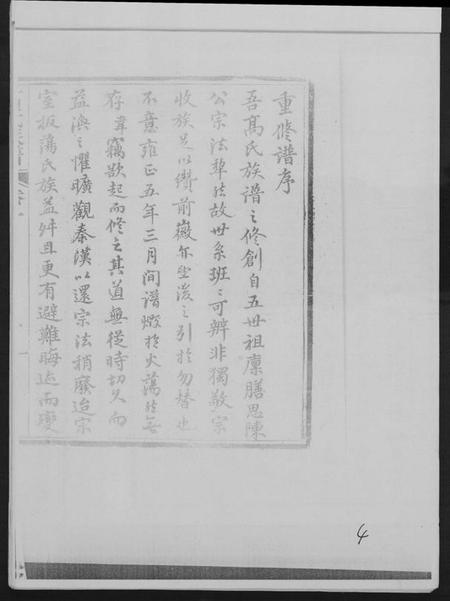 重修譜序
吾髙氏族譜之修創自五世祖廩膳思陳
公宗法犂然故世系班班可辨非獨敬宗
收族足以纘前徽亦望後之引於勿替也
不意雍正五年三月間譜燬於火蕩然無
存韋竊欲起而修之其道無從時切久而
益湮之懼曠觀秦漢以還宗法稍廢迨宗
室板蕩氏族益舛且更有避難晦迹而變
4